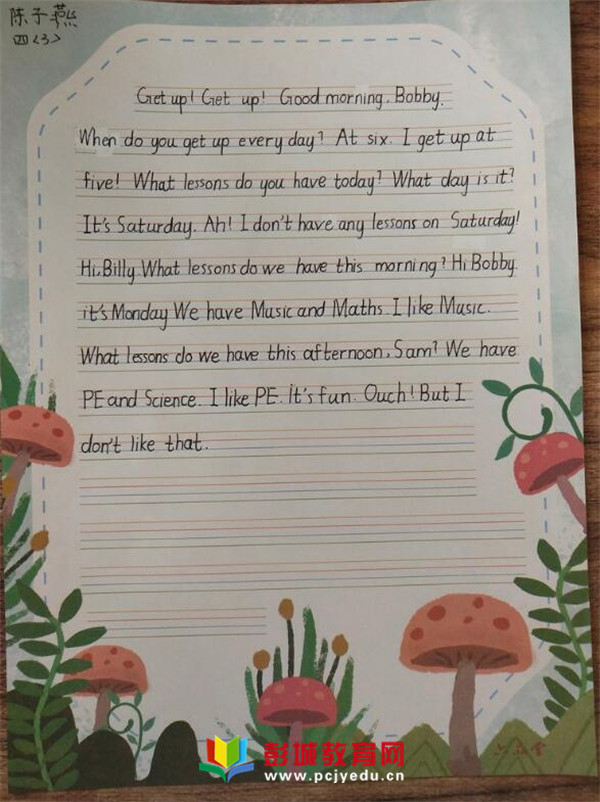 陈子燕
四(3)
Get up! Get up! Good morning, Bobby.
When do you get up every day? At six. I get up at
five! What lessons do you have today? What day is it?
It's Saturday. Ah! I don't have any lessons on Saturday!
Hi, Billy. What lessons do we have this morning? Hi Bobby
it's Monday We have Music and Maths. I like Music.
What lessons do we have this afternoon, Sam? We have
PE and Science. I like PE. It's fun. Ouch! But I
don't like that.
彭城教育网
www.pcjyedu.cn